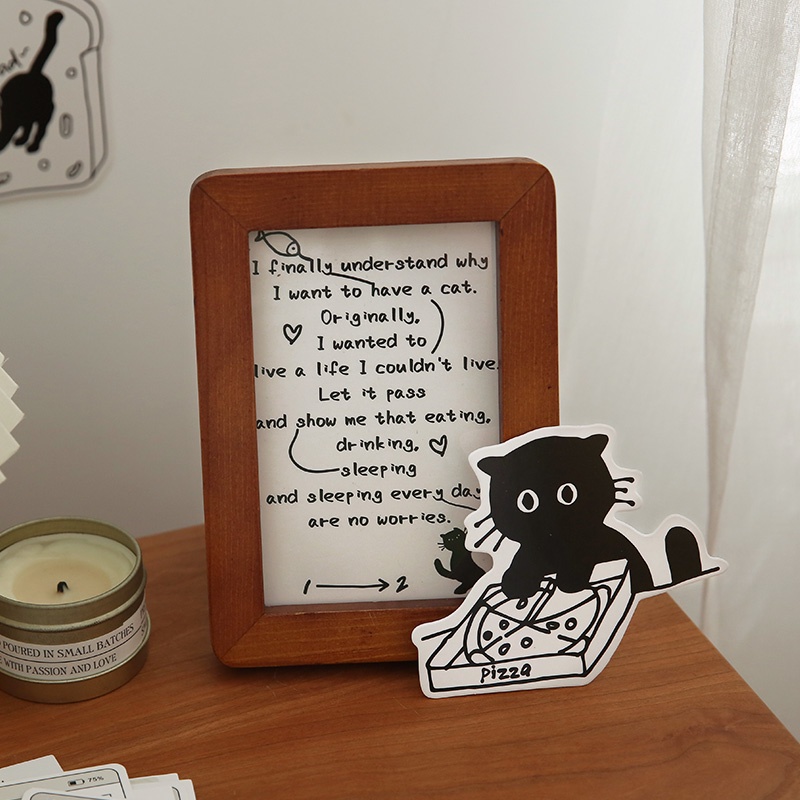 I finally understand why
I want to have a cat.
Originally,
I wanted to
live a life I couldn't live.
Let it pass
and show me that eating,
drinking,
sleeping
and sleeping every day
are no worries.
1 → 2
pizza
POURED IN SMALL BATCHES
WITH PASSION AND LOVE
75%